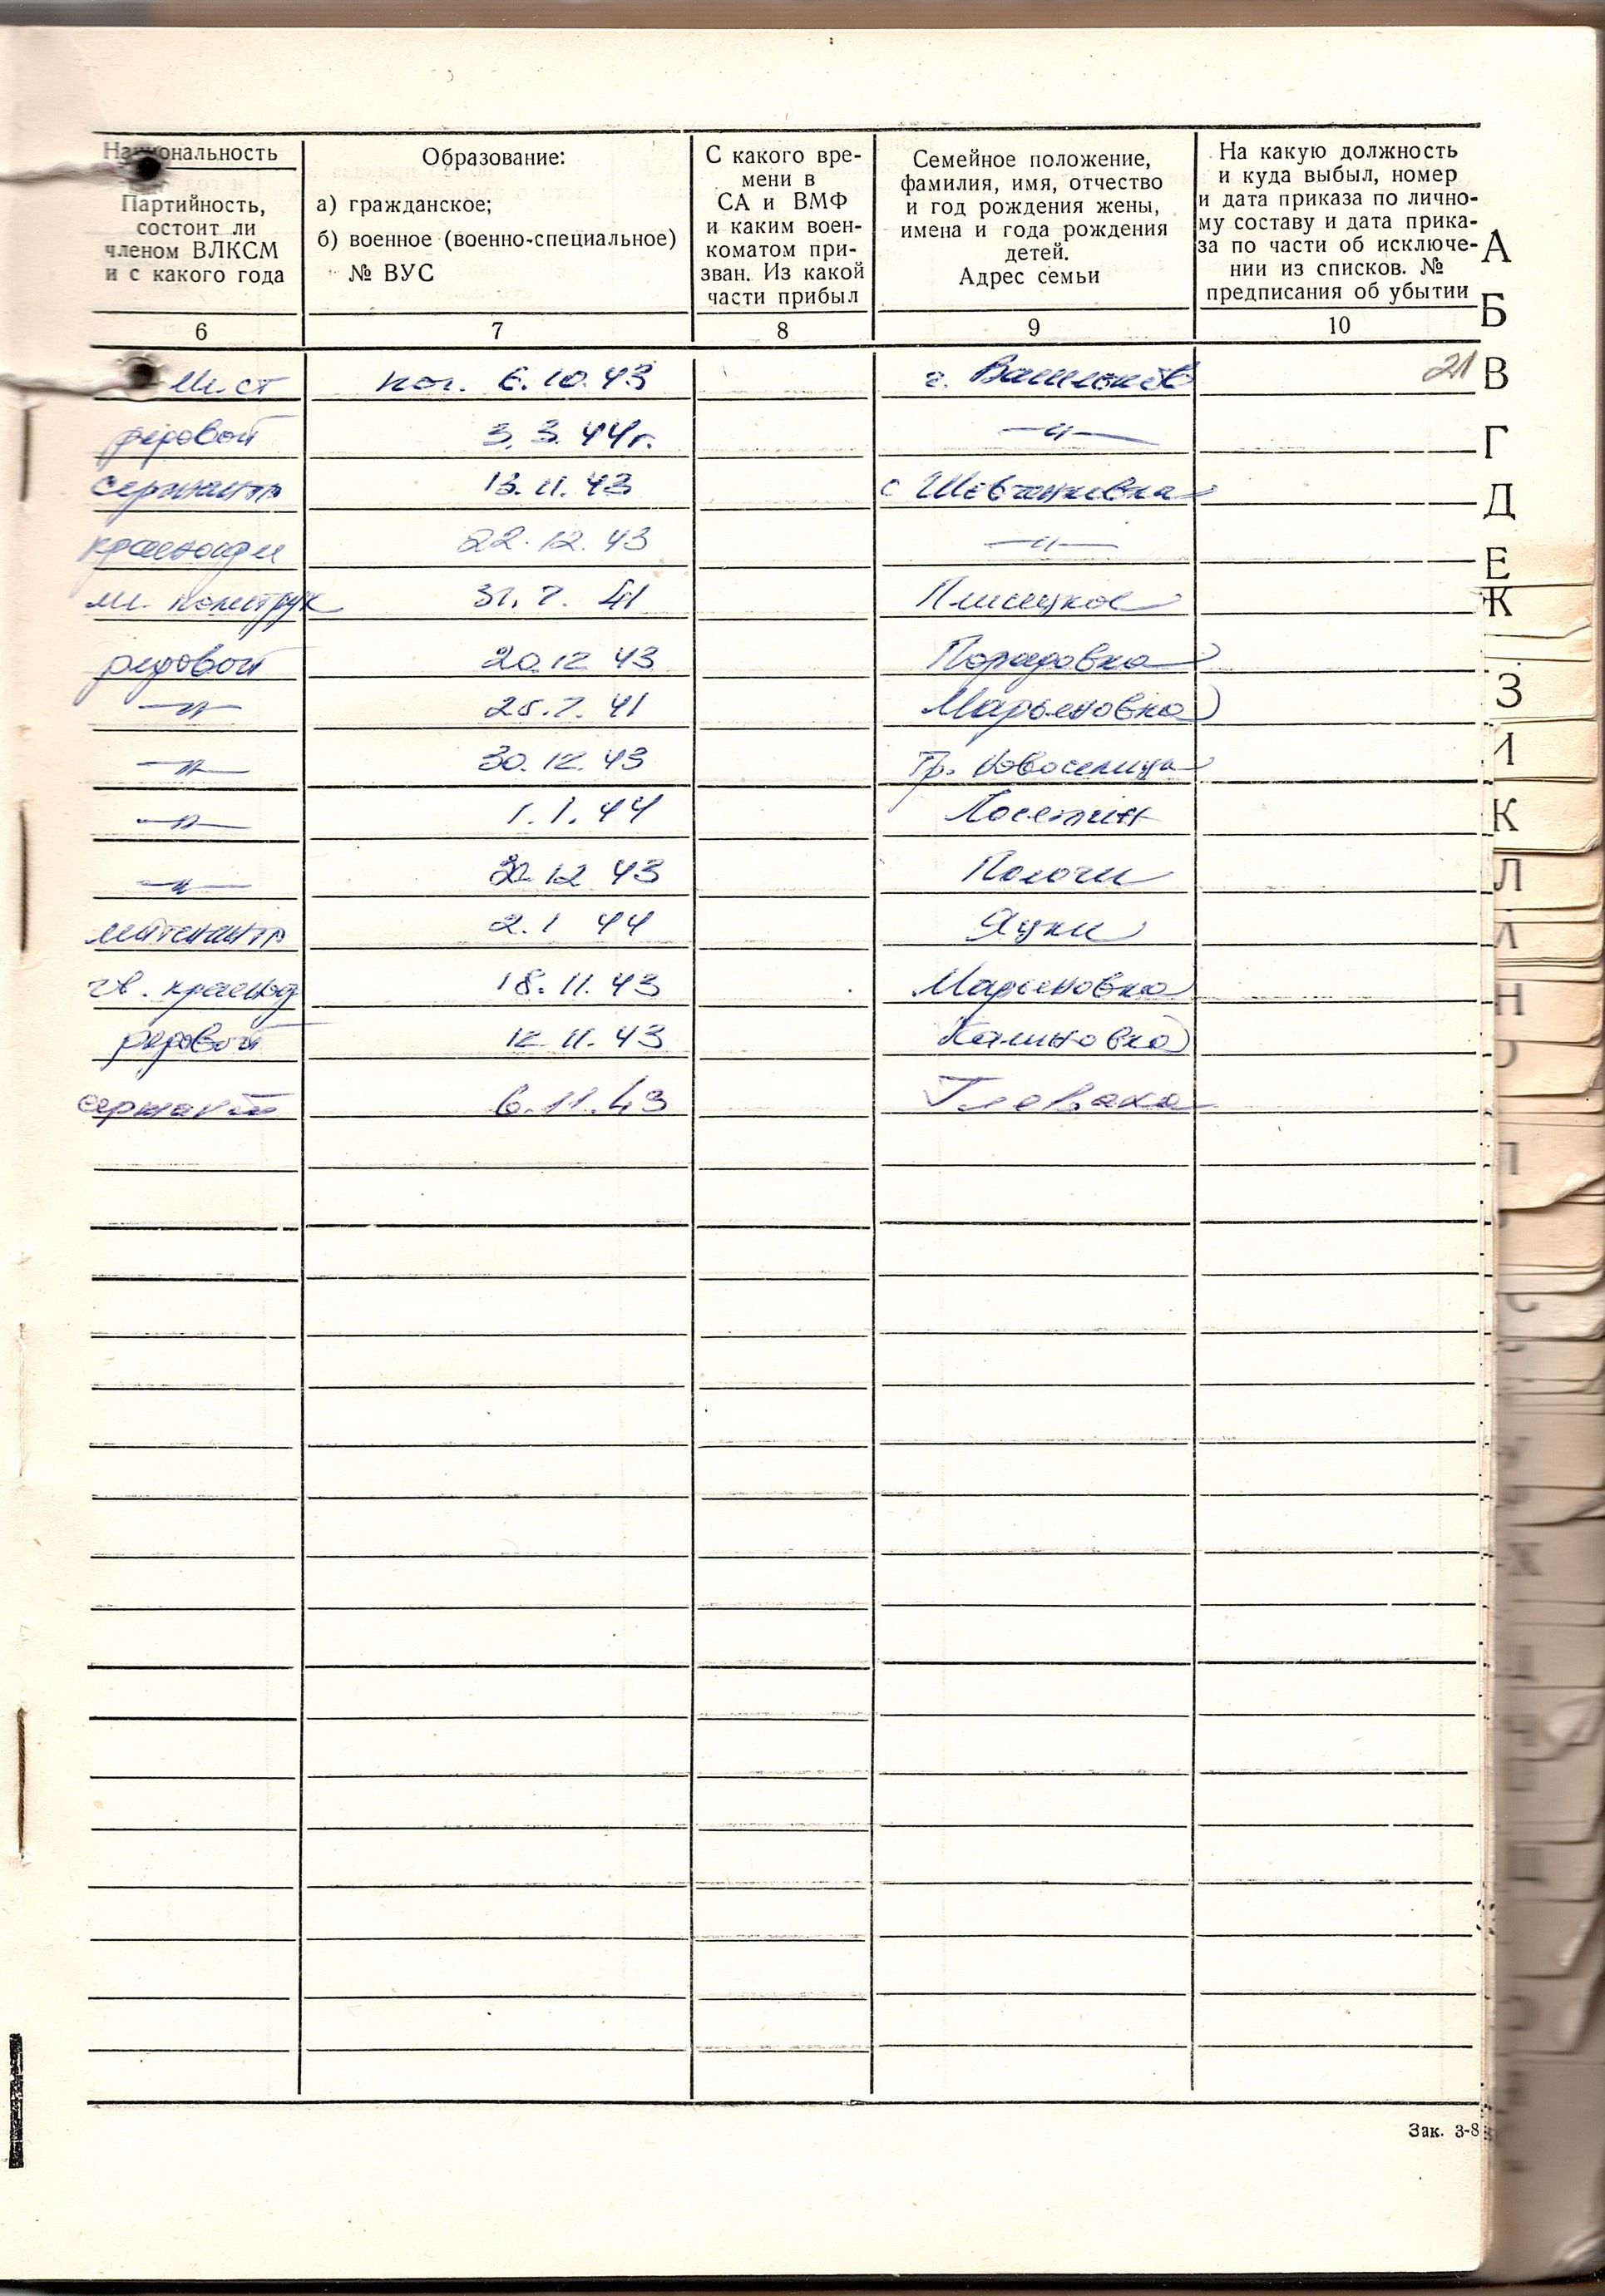 Национальность
Партийность,
состоит ли
членом ВЛКСМ
и с какого года
Образование:
а) гражданское;
б) военное (военно-специальное)
№ ВУС
С какого вре-
мени в
СА и ВМФ
и каким воен-
коматом при-
зван. Из какой
части прибыл
Семейное положение,
фамилия, имя, отчество
и год рождения жены,
имена и года рождения
детей.
Адрес семьи
На какую должность
и куда выбыл, номер
и дата приказа по лично-
му составу и дата прика-
за по части об исключе-
нии из списков. №
предписания об убытии
6 7 8 9 10
6.10.43 г. Васильков 21
рядовой 3.3.44г. —"—
сержант 13.11.43 с Шевченковка
22.12.43 —"—
мл. политрук 31.7.41 Плисецкое
рядовой 20.12 43 Порадовка
—"— 25.7.41 Марьяновка
—"— 30.12.43 Гр. Новоселица
—"— 1.1.44 Лосятин
—"— 12 43 Пологи
лейтенант 2.1 44 Яцки
гв. красноар 18.11.43 Марьяновка
рядовой 12 11.43 Калиновка
сержант 6.11.43 Глеваха
А
Б
В
Г
Д
Е
Ж
З
И
К
Л
Н
Х
Зак. 3-8